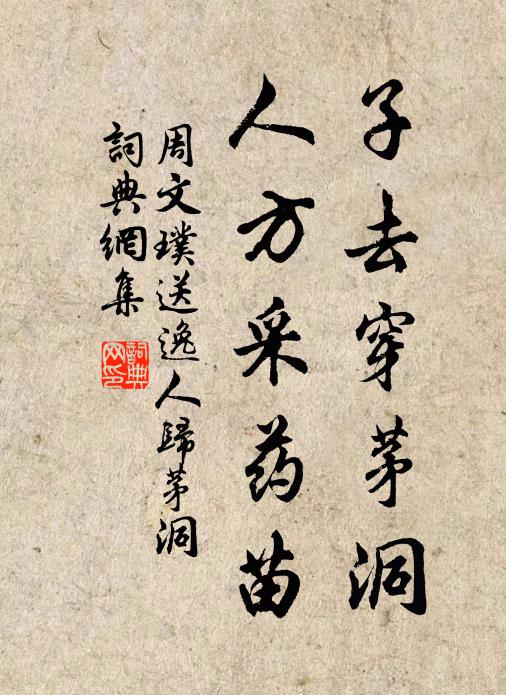 子去穿茅洞
人方采药苗
周文璞送逸人歸茅洞
詞典網集
詞典网印